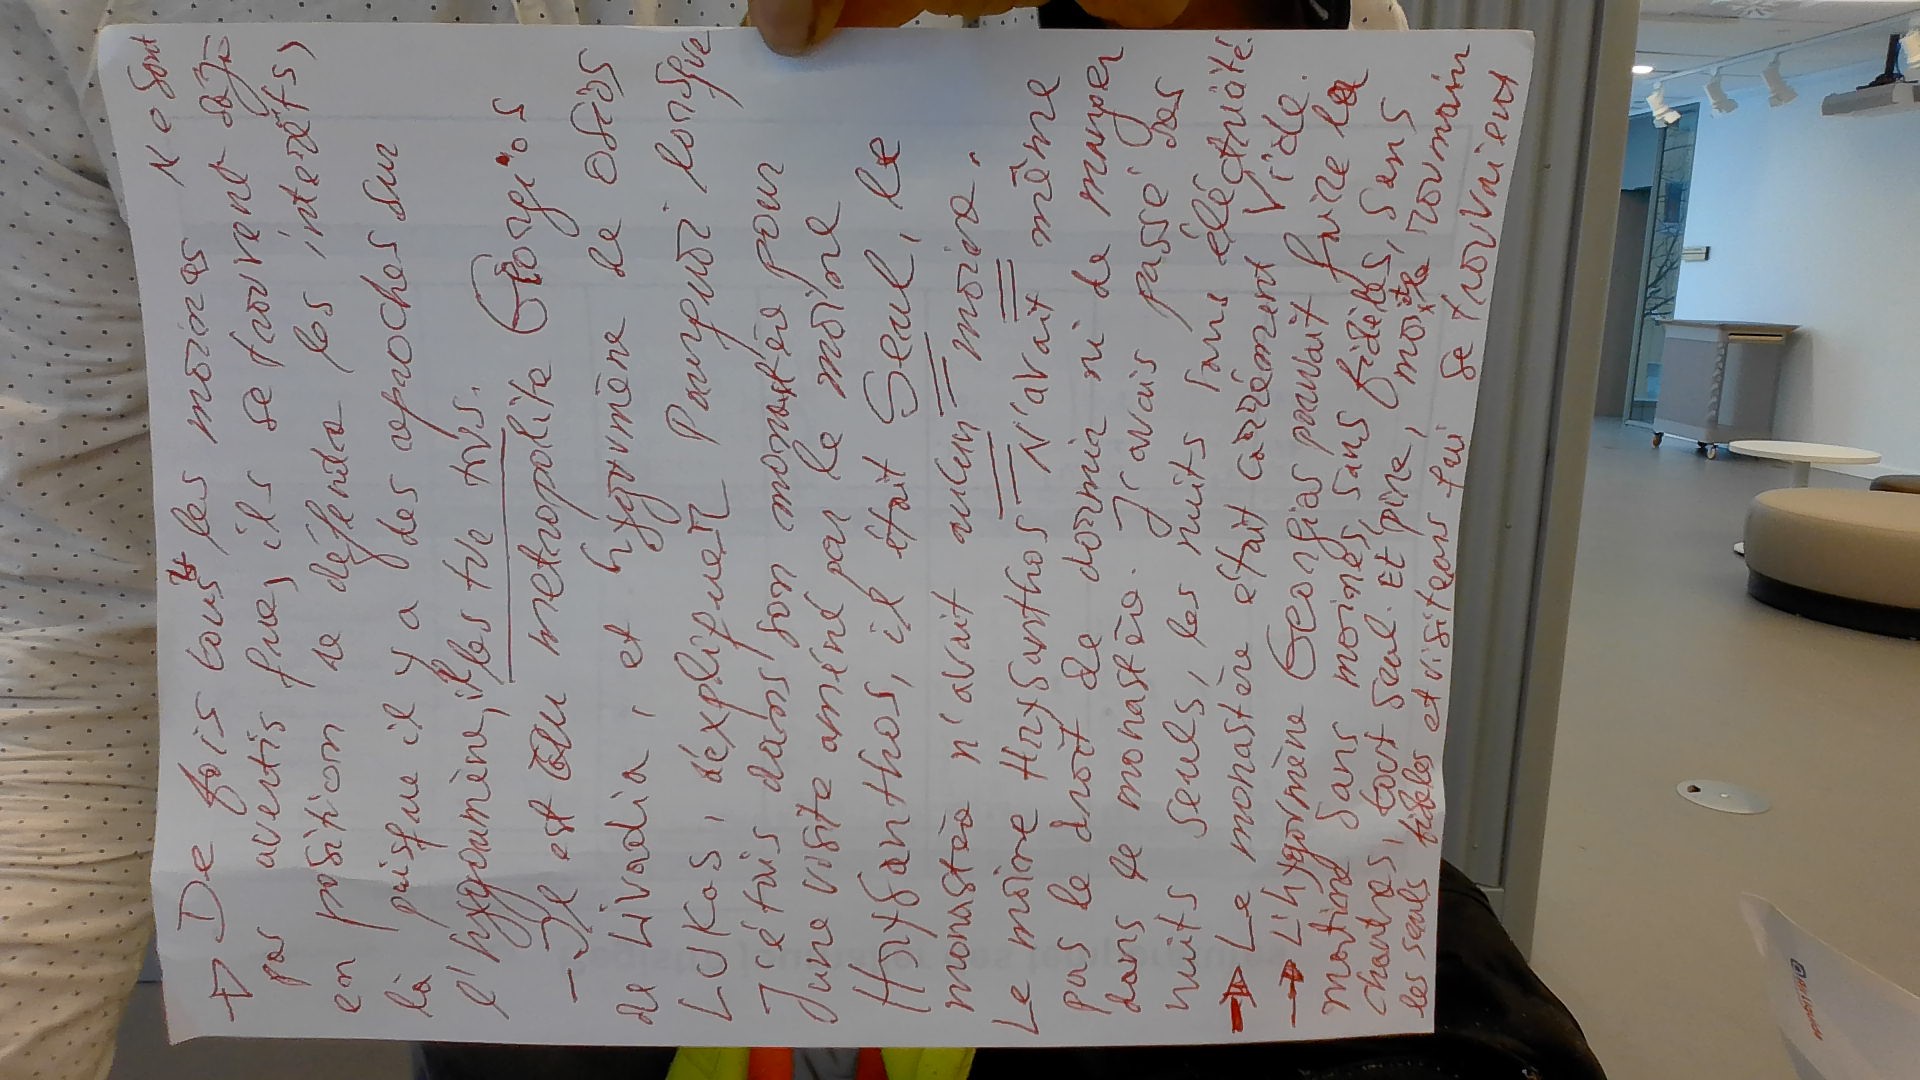 → De fois tous les moines ne sont
pas avertis que, ils se trouvent déjà
en position de défendre les intérêts,
là puisque il y a des reproches sur
l'hygoumène, ils les tue tvs.
- Il est au metropolite Géorgios
de Livadia, et hygoumène de osios
Lukas, d'expliquer pourquoi lorsque
J'étais dans son monastère pour
une visite améné par le moine
Hrysanthos, il était Seul, le
monastère n'avait aucun moine.
Le moine Hrysanthos N'avait même
pas le droit de dormir ni de manger
dans le monastère. J'avais passé des
nuits seuls, les nuits sans électricité.
→ Le monastère était carrément Vide.
→ L'hygomène Georgias pouvait faire la
sans moines, sans fidèles, sans
chantres, tout seul. Et pire, roumain
les seuls fidèles et visiteurs qui se trouvaient